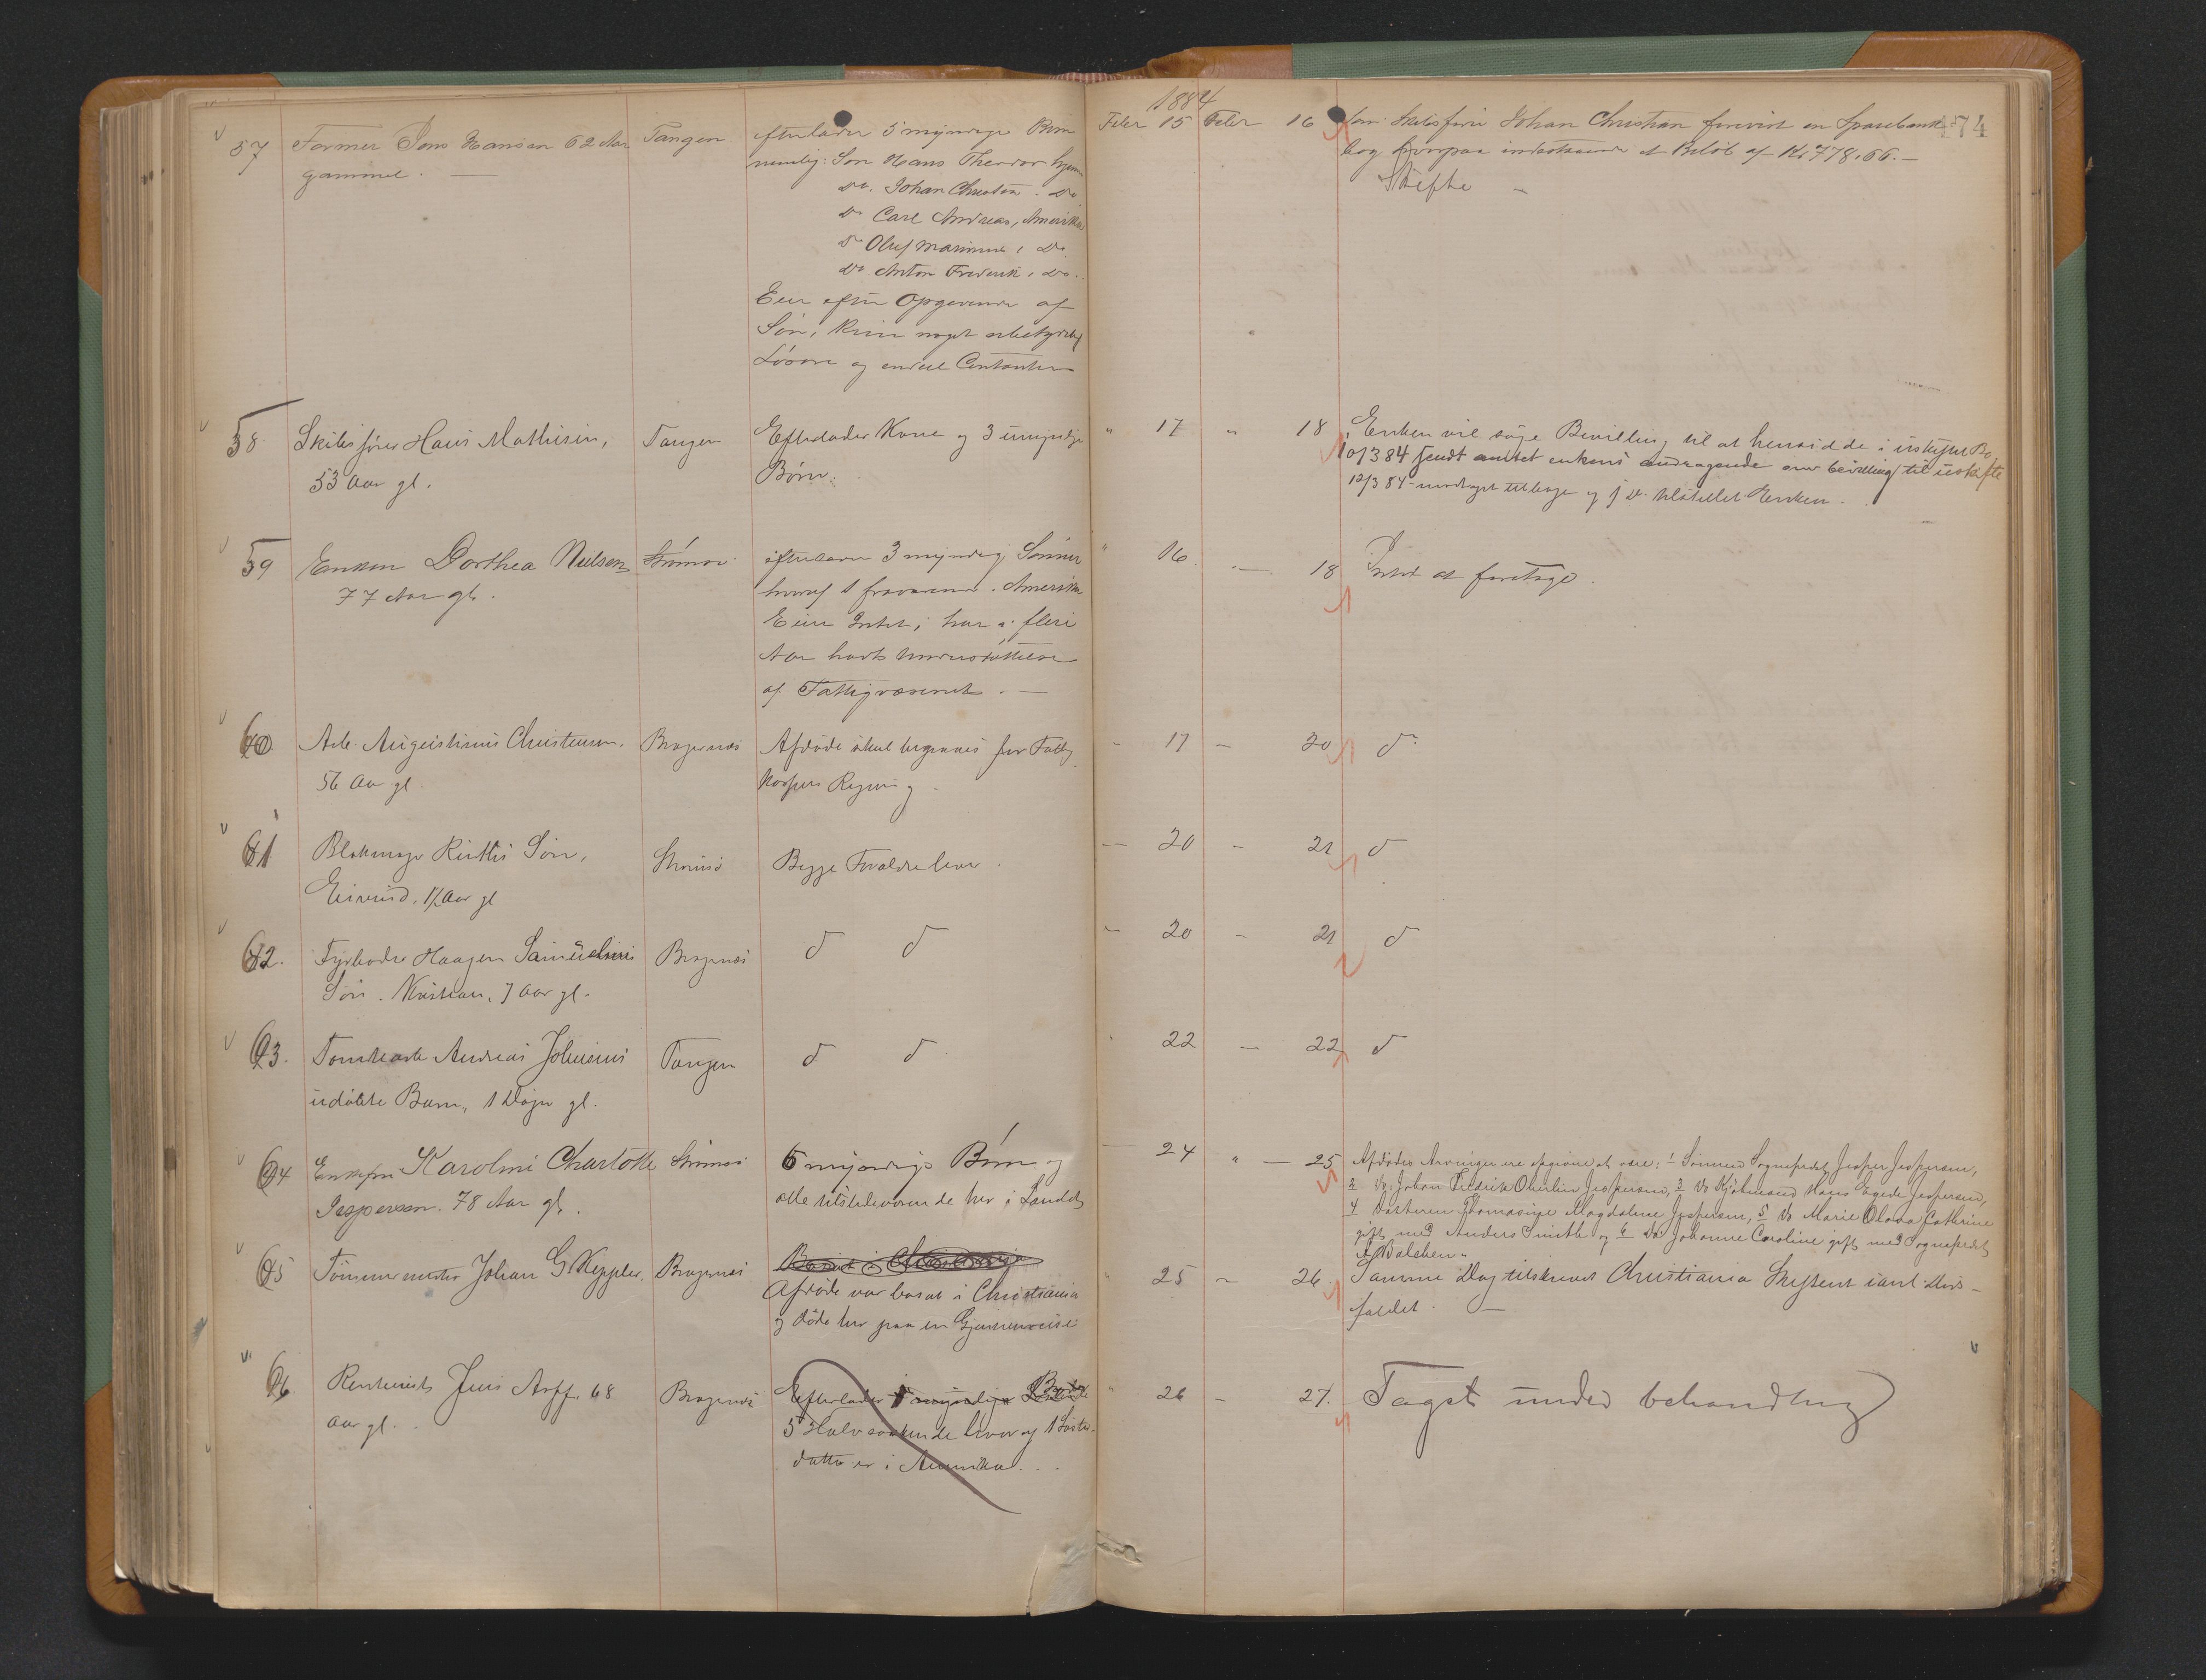 1884
174
57 Former Jens Hansen 62 Aar Tangen efterlader 5 myndige Børn Feber 15 Feber 16 Skibsfører Johan Christian forevist en Sparebank-
gammel. — nemlig: Søn Hans Theodor hjem bog hvorpaa indestaaende et Beløb af Kr 778.66. —
Do. Johan Christian. Do. Skifte —
Do Carl Andreas, Amerika
Do Oluf Marinius, Do.
Do. Anton Frederik, Do.
Eier efter Opgivende af
Søn, kun noget ubetydelig
Løsøre og endeel Contanter
58 Skibsfører Hans Mathisen, Tangen Efterlader Kone og 3 umyndige " 17 " 18 Enken vil søge Bevilling til at hensidde i uskiftet Bo
53 Aar gl. Børn. 10/3 84 sendt amtet enkens andragende om bevilling til uskifte
12/3 84 modtaget tilbage og s. D. tilstillet Enken.
59 Enken Dorthea Nielsen Strømsø efterlader 3 myndige Sønner " 16 — 18 Intet at foretage.
77 Aar gl. hvoraf 1 fraværende i Amerika
Eier Intet; har i flere
Aar havt Understøttelse
af Fattigvæsenet. —
60 Arb. Augustinus Christensen. Bragernæs Afdøde skal begraves for Fattig- - 17 — 20 do
56 Aar gl. kassens Regning.
61 Blokmager Søn, Strømsø Begge Forældre lever. — 20 - 21 do
Eivind, 1½ Aar gl
62. Fyrbøder Haagen Samuelsens Bragernæs do do - 20 - 21 do
Søn. Kristian, 7 Aar gl.
63. Tomtearb Andreas Johnsens Tangen do do 22 — 22 do
udøbte Barn, 1 Døgn gl.
64 Enkefru Karoline Charlotte Strømsø 6 myndige Børn og — 24 " — 25 Afdødes Arvinger ere opgivne at være: 1 Sønnen Sogneprest Jesper Jespersen,
Jespersen. 78 Aar gl. alle tilstedeværende her i Landet 2 Do: Johan Fredrik Oberlin Jespersen, 3 Do Kjøbmand Hans Egede Jespersen,
4 Datteren Thomasine Magdalene Jespersen, 5 Do Marie Olava Cathrine
gift med Anders Smith og 6 Do Johanne Caroline gift med Sogneprest
Balchen.
65 Tømmermester Johan G Keppler, Bragernæs Bosat i Christiania " 25 — 26. Samme Dag tilskrevet Christiania Skifteret om Døds-
Afdøde var bosat i Christiania faldet. —
og døde her paa en Gjennemreise
66. Rentenist Jens Arff. 68 Bragernæs Efterlader 1 myndige " 26 - 27. Taget under behandling
Aar gl. 5 Halvsøskende lever og 1 Søster-
datter er i Amerika.